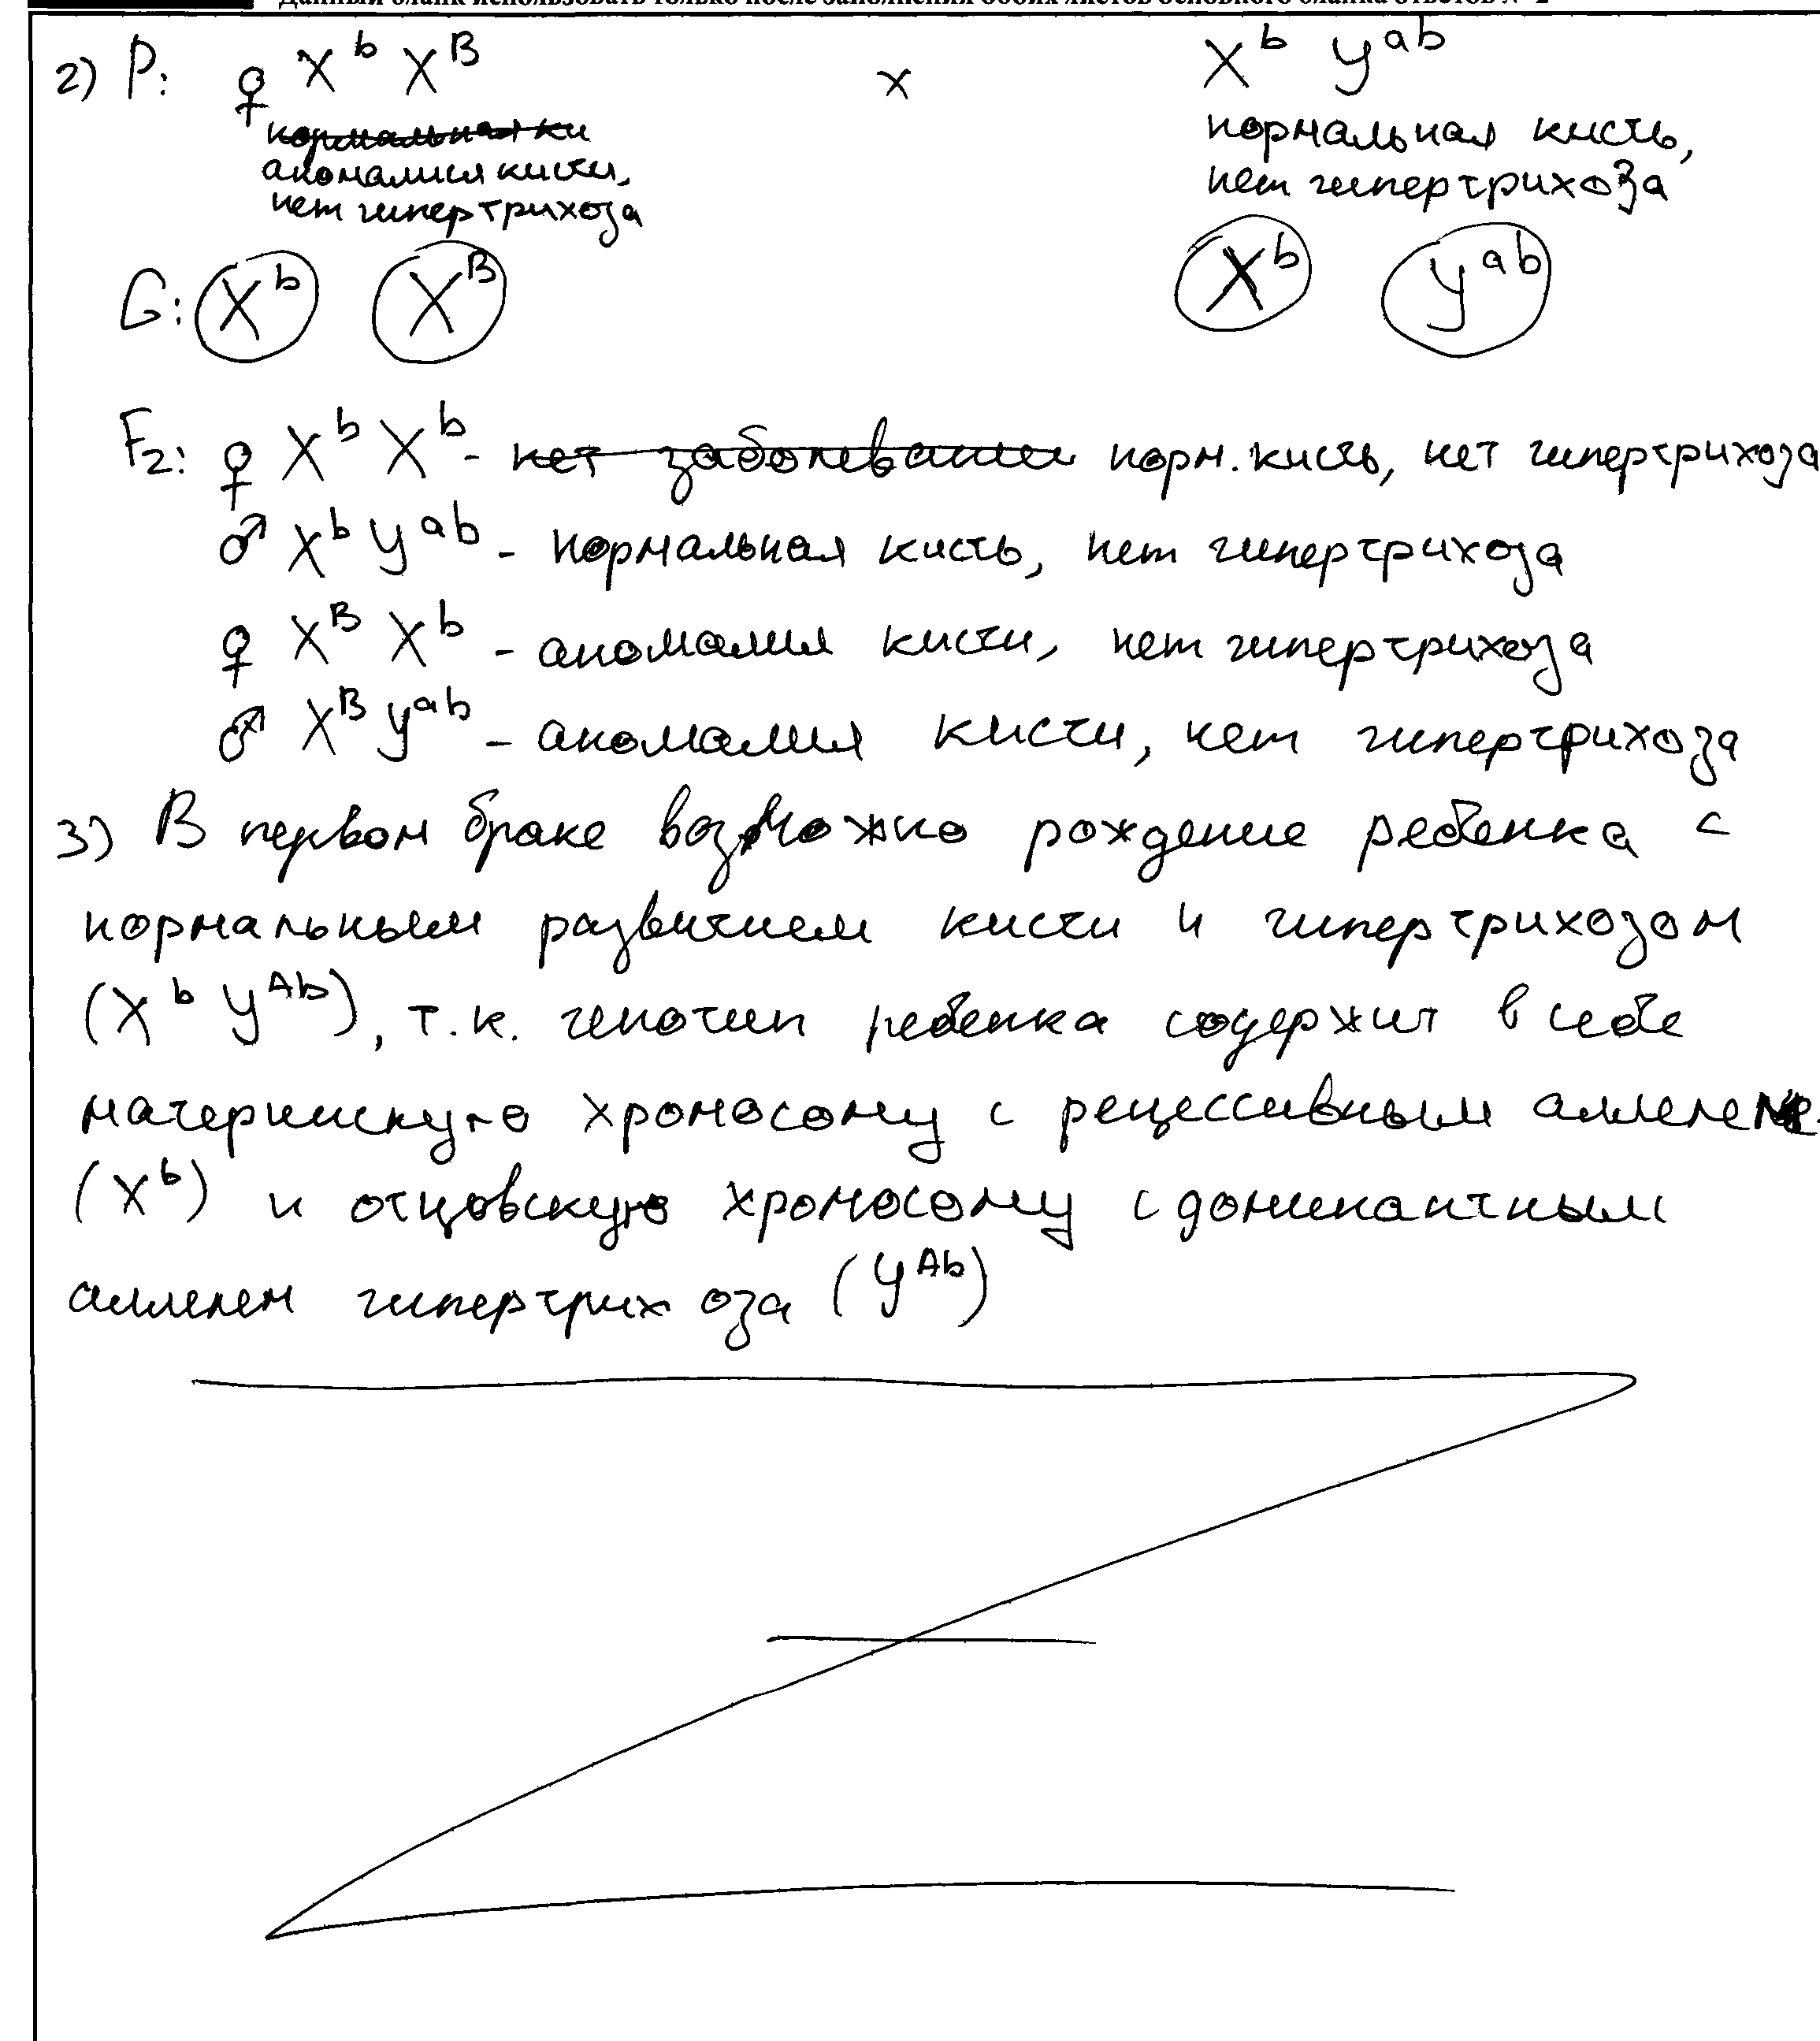 Данный бланк использовать только после заполнения обоих листов основного бланка ответов № 2
2) P: ♀ X^b X^B x X^b Y^ab
нормальная ки нормальная кисть,
аномалия кисти, нет гипертрихоза
нет гипертрихоза
G: X^b X^B X^b Y^ab
F2: ♀ X^b X^b - нет заболевании норм. кисть, нет гипертрихоза
♂ X^b Y^ab - нормальная кисть, нет гипертрихоза
♀ X^B X^b - аномалия кисти, нет гипертрихоза
♂ X^B Y^ab - аномалия кисти, нет гипертрихоза
3) В первом браке возможно рождение ребенка с
нормальным развитием кисти и гипертрихозом
(X^b Y^Ab), т.к. генотип ребенка содержит в себе
материнскую хромосому с рецессивным аллелем
(X^b) и отцовскую хромосому с доминантным
аллелем гипертрихоза (Y^Ab)